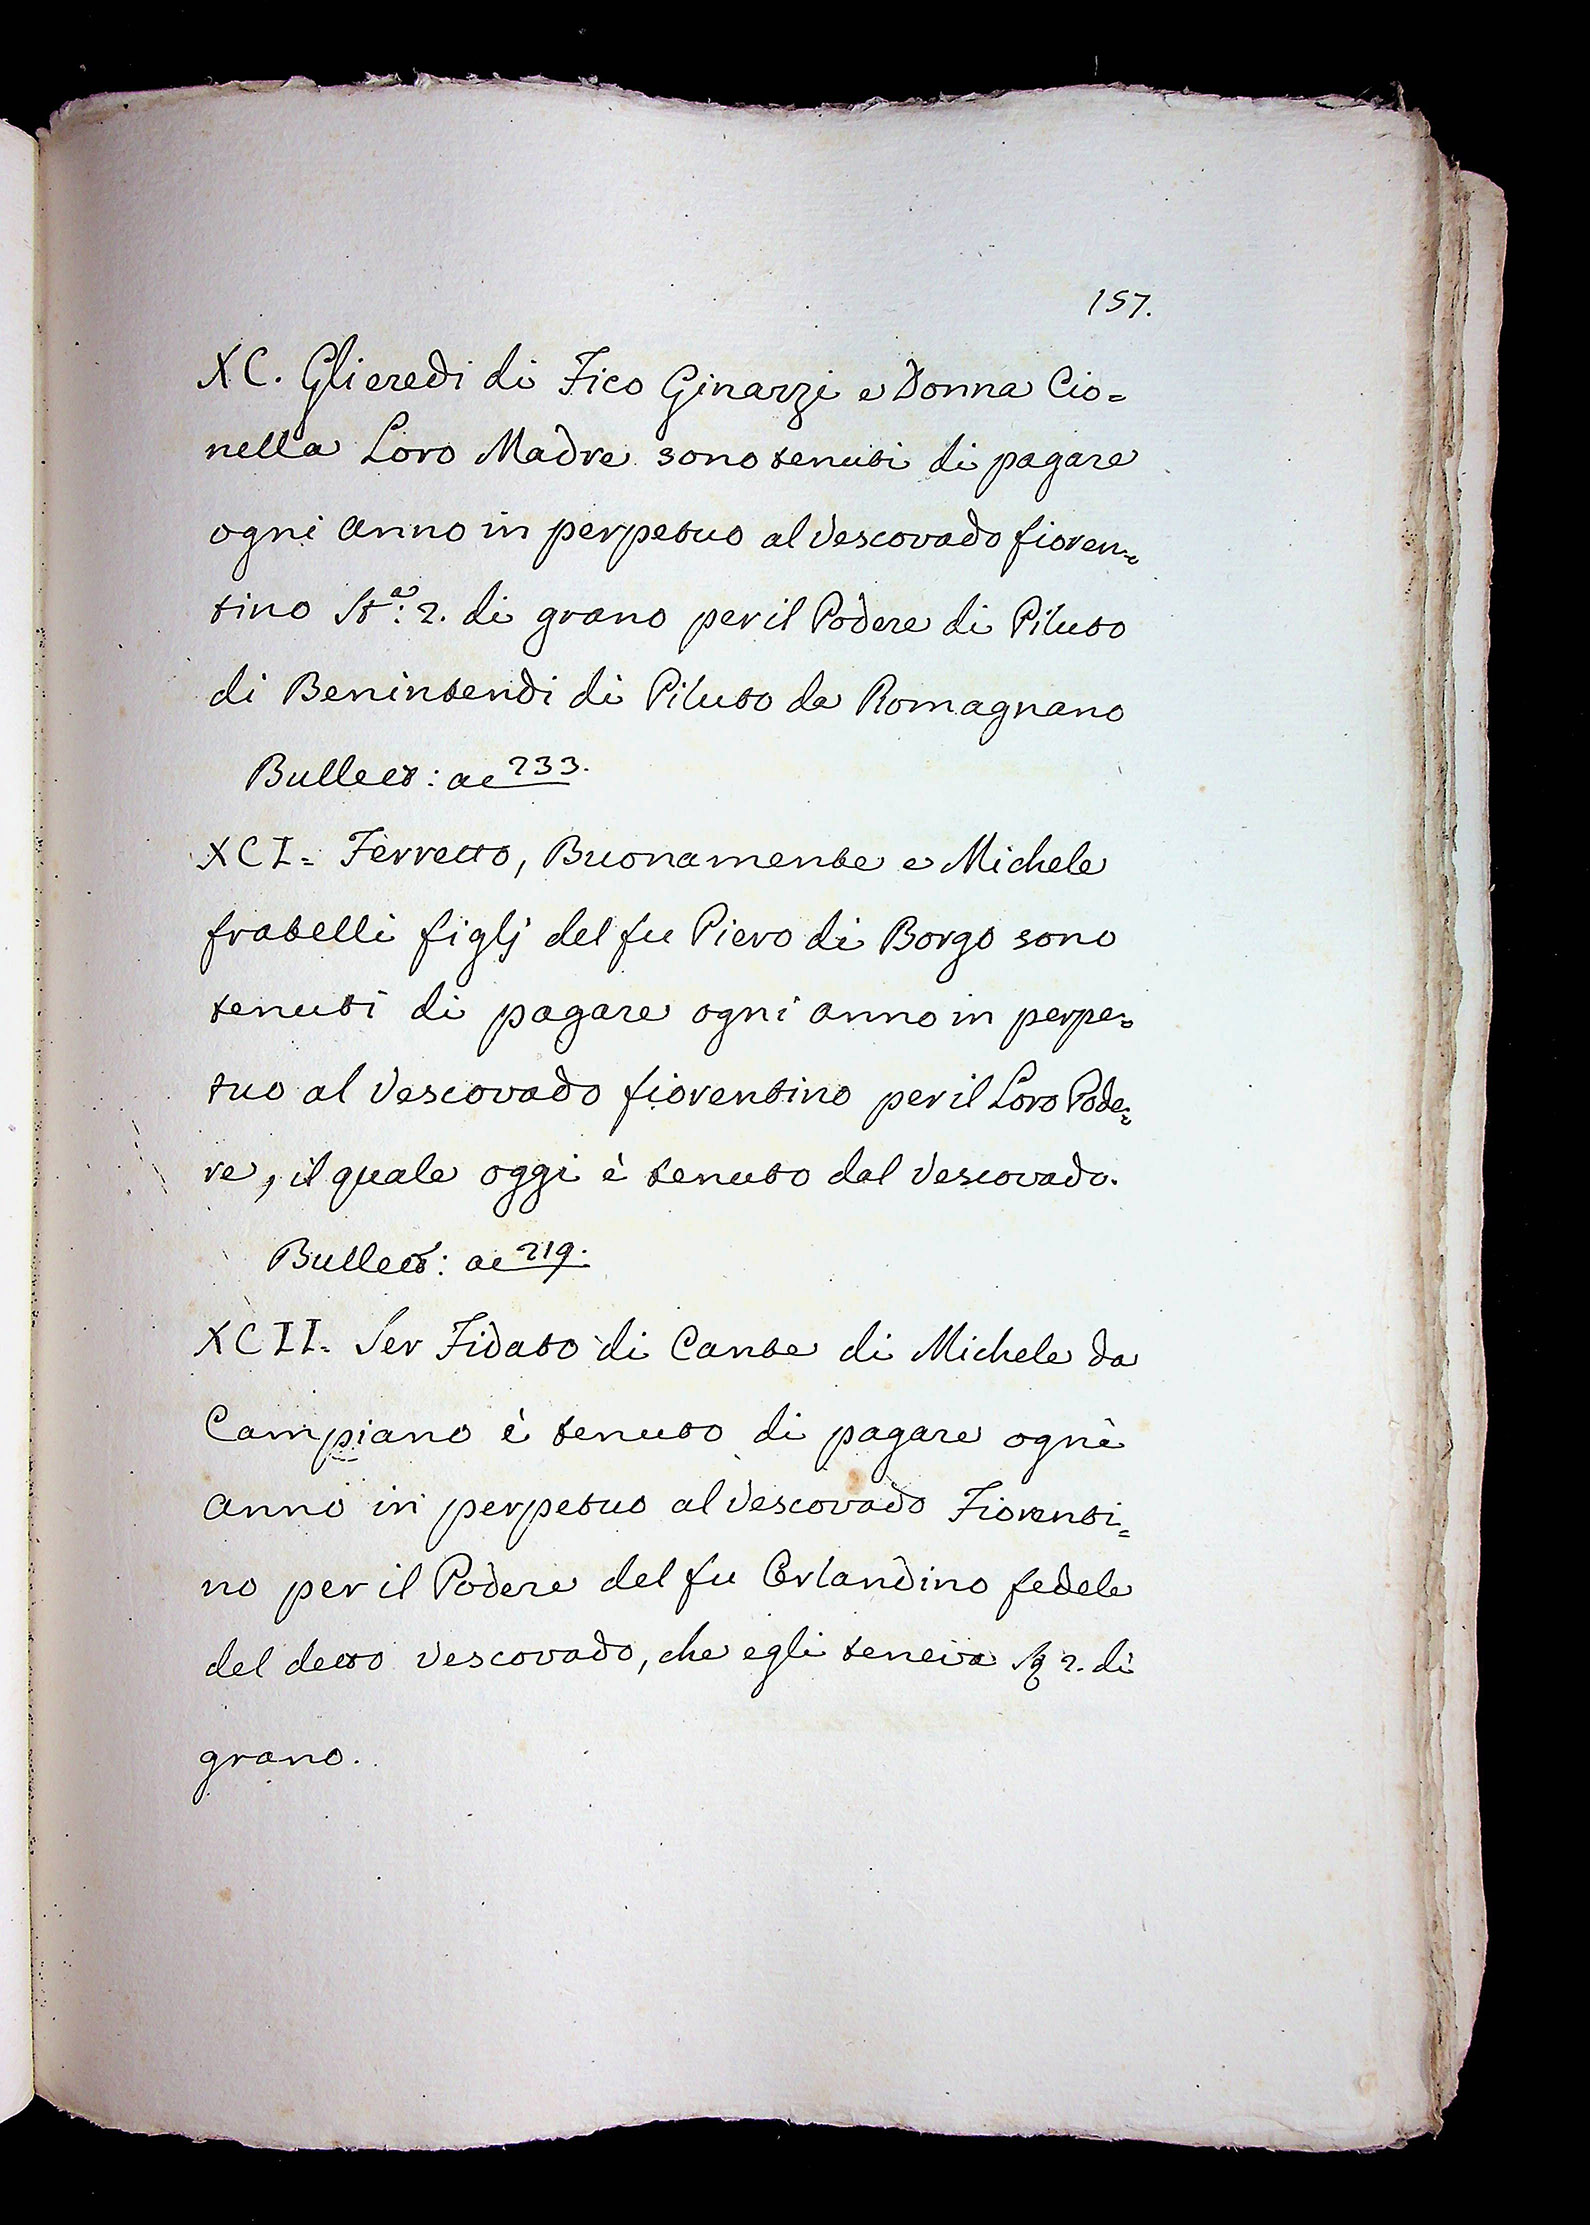 157.
XC. Gli eredi di Fico Ginazzi e Donna Cio=
nella Loro Madre sono tenuti di pagare
ogni anno in perpetuo al Vescovado fioren=
tino Sta: 2. di grano per il Podere di Piluto
di Benintendi di Piluto da Romagnano
Bullett: ac 233.
XCI= Ferretto, Buonamente e Michele
fratelli figlj del fu Piero di Borgo sono
tenuti di pagare ogni anno in perpe=
tuo al Vescovado fiorentino per il Loro Pode=
re, il quale oggi è tenuto dal Vescovado.
Bullett: ac 219.
XCII= Ser Fidato di Cante di Michele da
Campiano è tenuto di pagare ogni
anno in perpetuo al Vescovado Fiorenti=
no per il Podere del fu Orlandino fedele
del detto Vescovado, che egli teneva 2. di
grano.